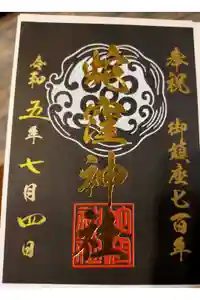 奉祝 御鎮座七百年
蛇窪神社
令和五年七月四日